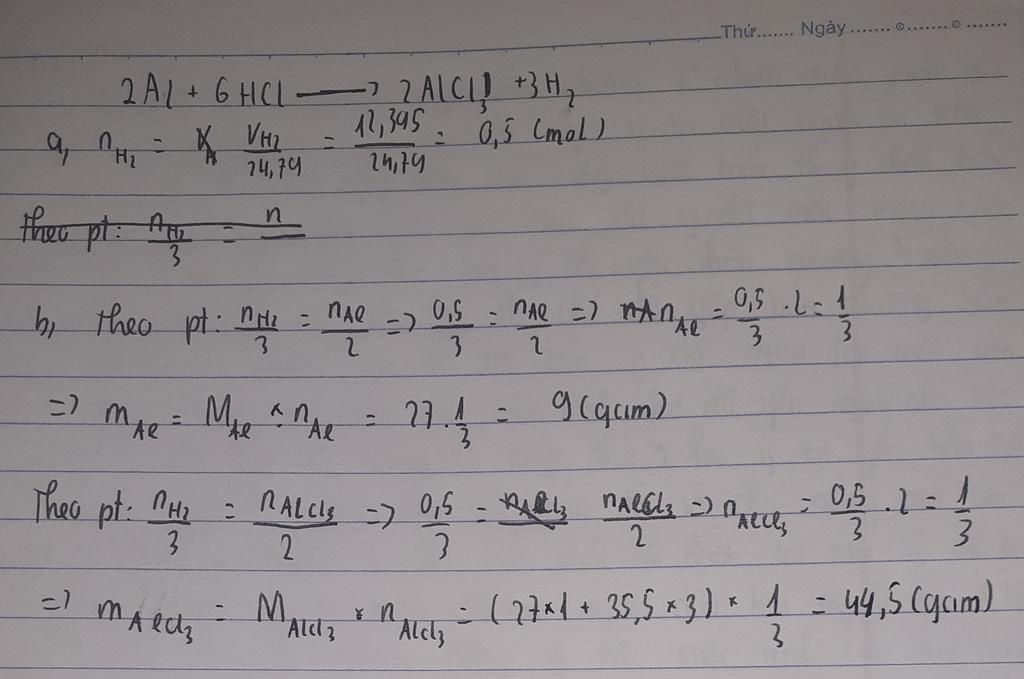 Thứ....... Ngày ....... ⊙ ....... ⊙ .......
2Al + 6HCl ⟶ 2AlCl₃ + 3H₂
a, n_H₂ = V_H₂/24,79 = 12,395/24,79 = 0,5 (mol)
Theo pt: n_H₂/3 = n
b, Theo pt: n_H₂/3 = n_Al/2 => 0,5/3 = n_Al/2 => n_Al = 0,5/3 . 2 = 1/3
=> m_Al = M_Al × n_Al = 27 . 1/3 = 9 (gam)
Theo pt: n_H₂/3 = n_AlCl₃/2 => 0,5/3 = n_AlCl₃/2 => n_AlCl₃ = 0,5/3 . 2 = 1/3
=> m_AlCl₃ = M_AlCl₃ × n_AlCl₃ = (27×1 + 35,5×3) × 1/3 = 44,5 (gam)